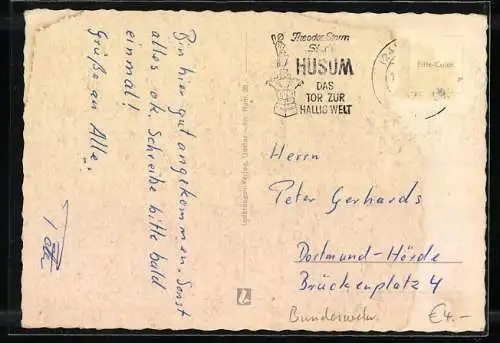 Bin hier gut angekommen. Sonst
alles ok. Schreibe bitte bald
einmal!
Grüße an Alle.
Theodor Storm
Stadt
HUSUM
DAS
TOR ZUR
HALLIG WELT
Herrn
Peter Gerhards
Dortmund-Hörde
Brückenplatz 4
Bundeswehr.
€4.-